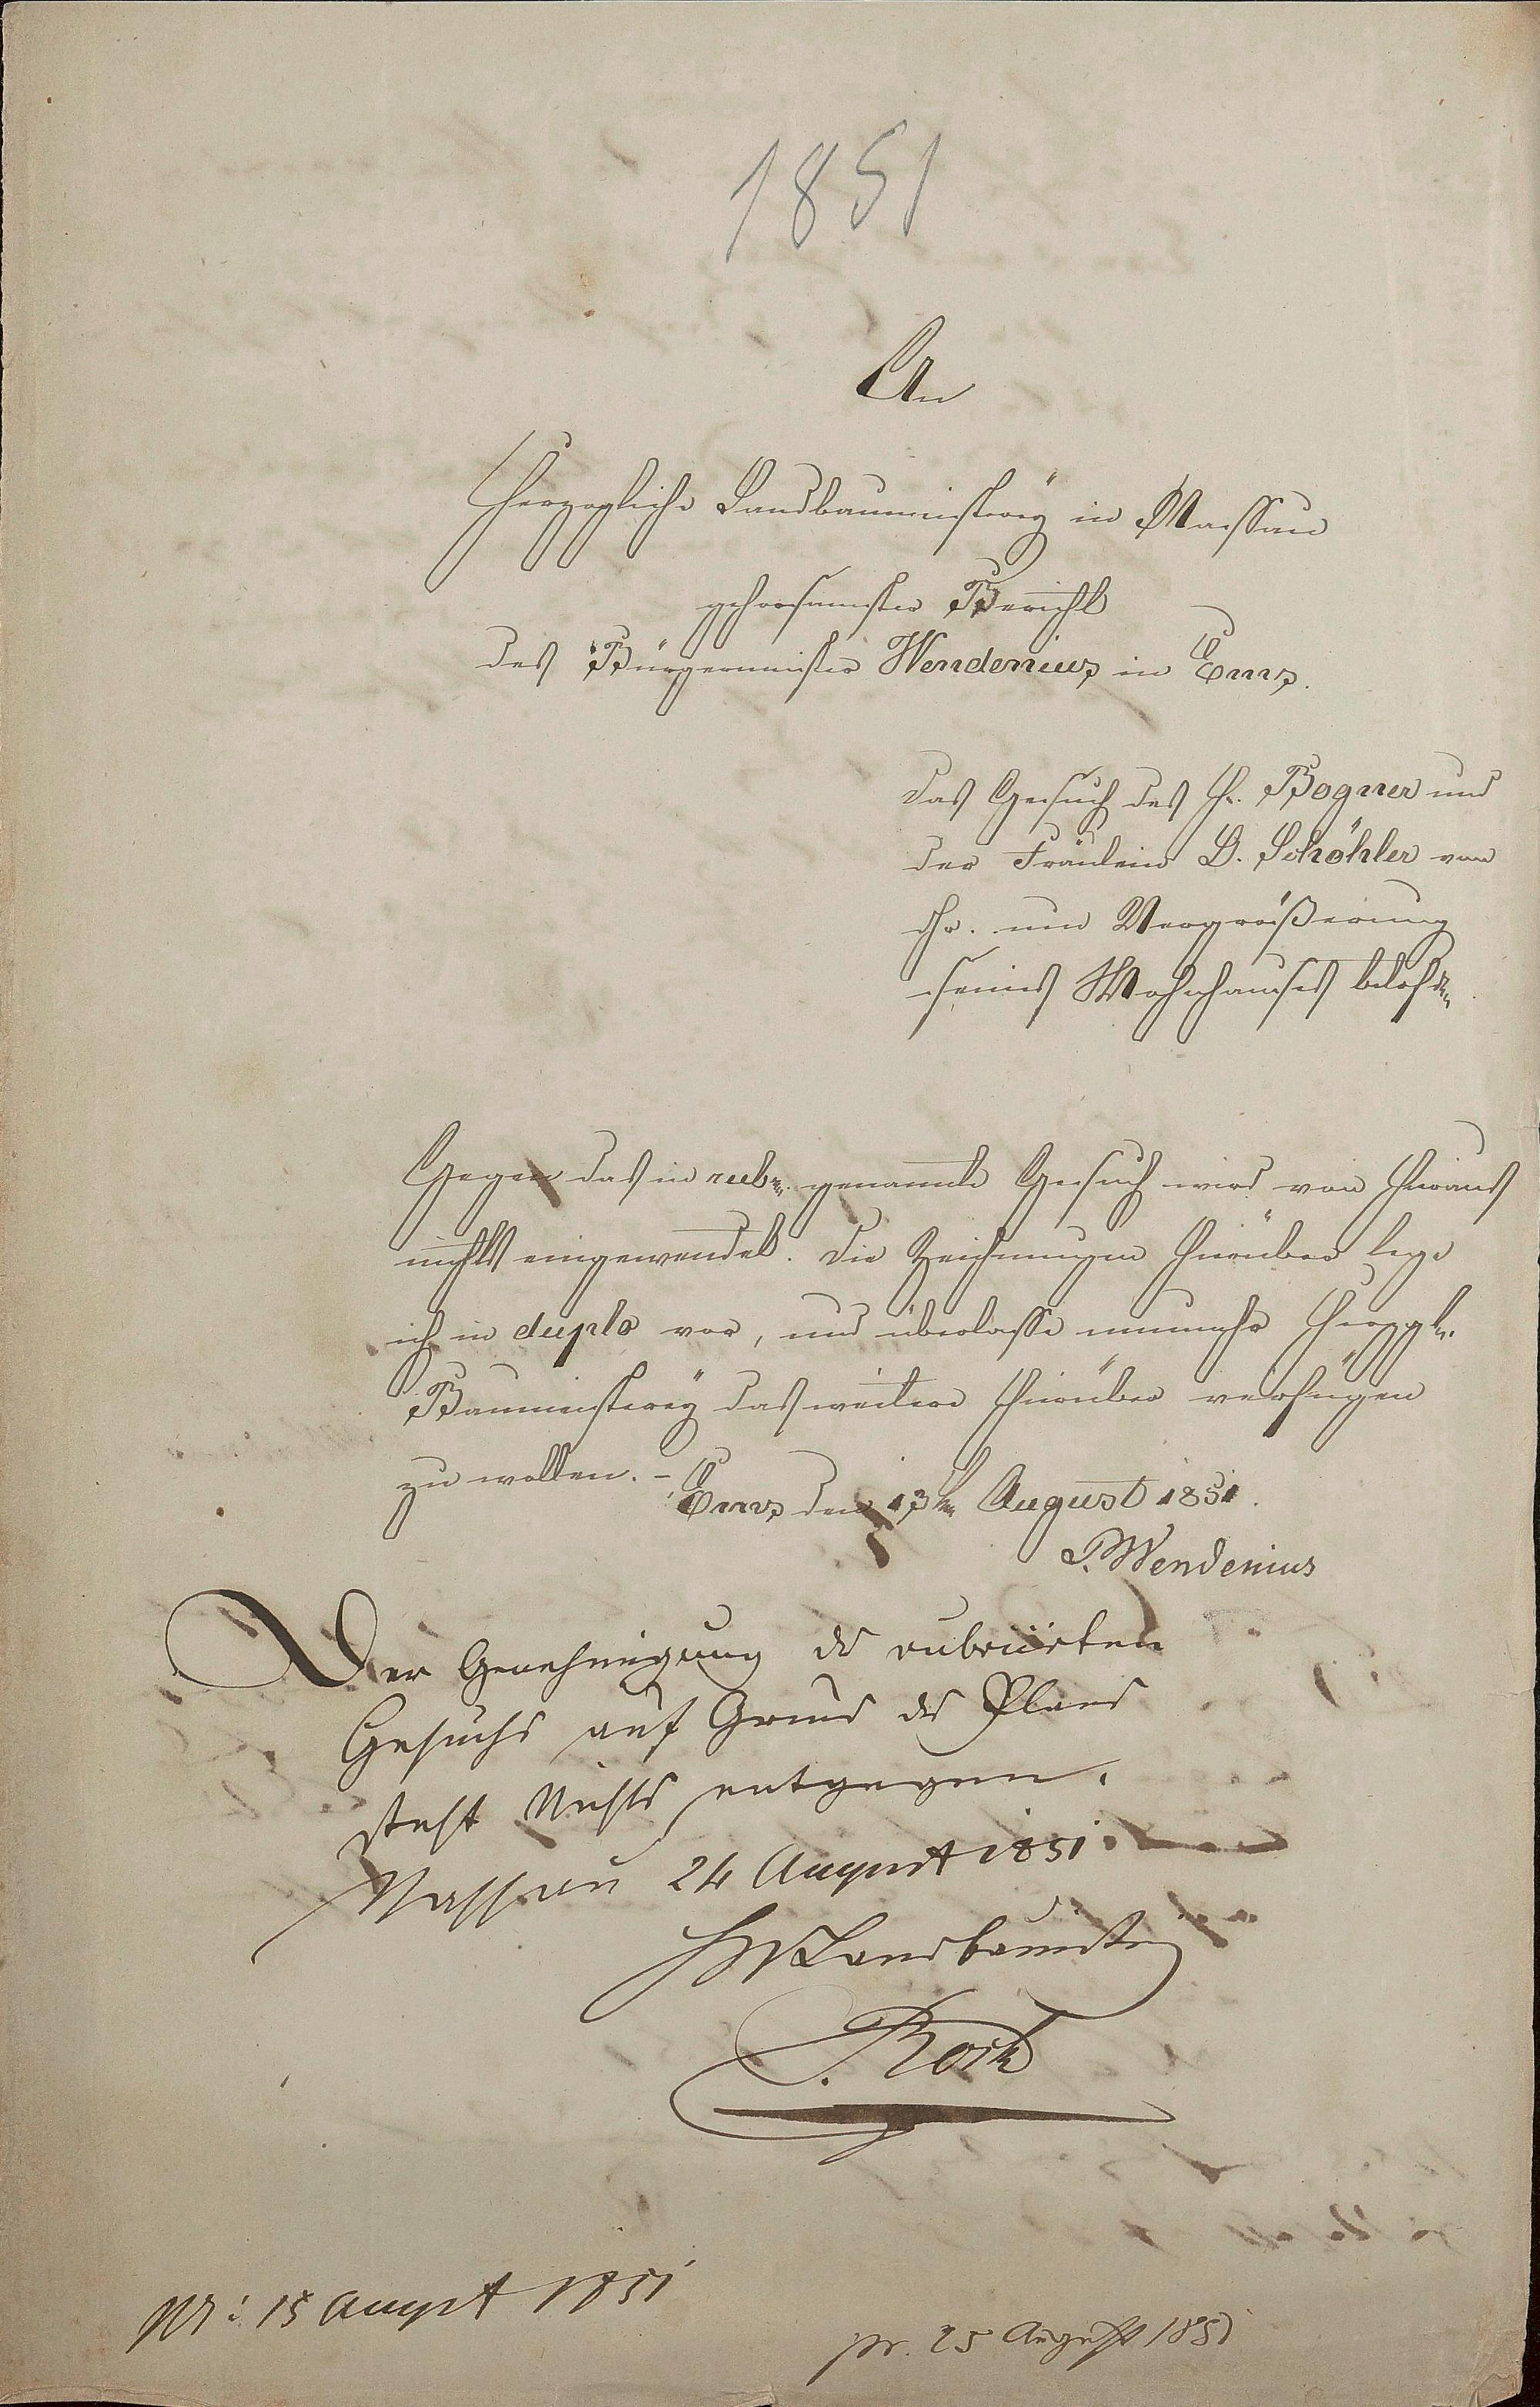 1851
An
Herzogliche Landbaumeisterey in Nassau
gehorsamster Bericht
des Bürgermeister Wendenius in Ems.
Das Gesuch des H. Bogner und
der Fräulein D. Schöhler von
hr. um Vergrößerung
seines Wohnhauses
Gegen das in rubr. genannte Gesuch wird von hieraus
nichts eingewendet. Die Zeichnungen hierüber lege
ich in duplo vor, und überlasse nunmehr Herzgl.
Baumeisterey das weitere hierüber verfügen
zu wollen. –
Ems den 13ten August 1851.
Wendenius
Der Genehmigung des rubricirten
Gesuchs auf Grund des Planes
steht Nichts entgegen.
Nassau 24 August 1851.
HN Landbaumstrei
pr: 15 August 1851
pr. 25 August 1851